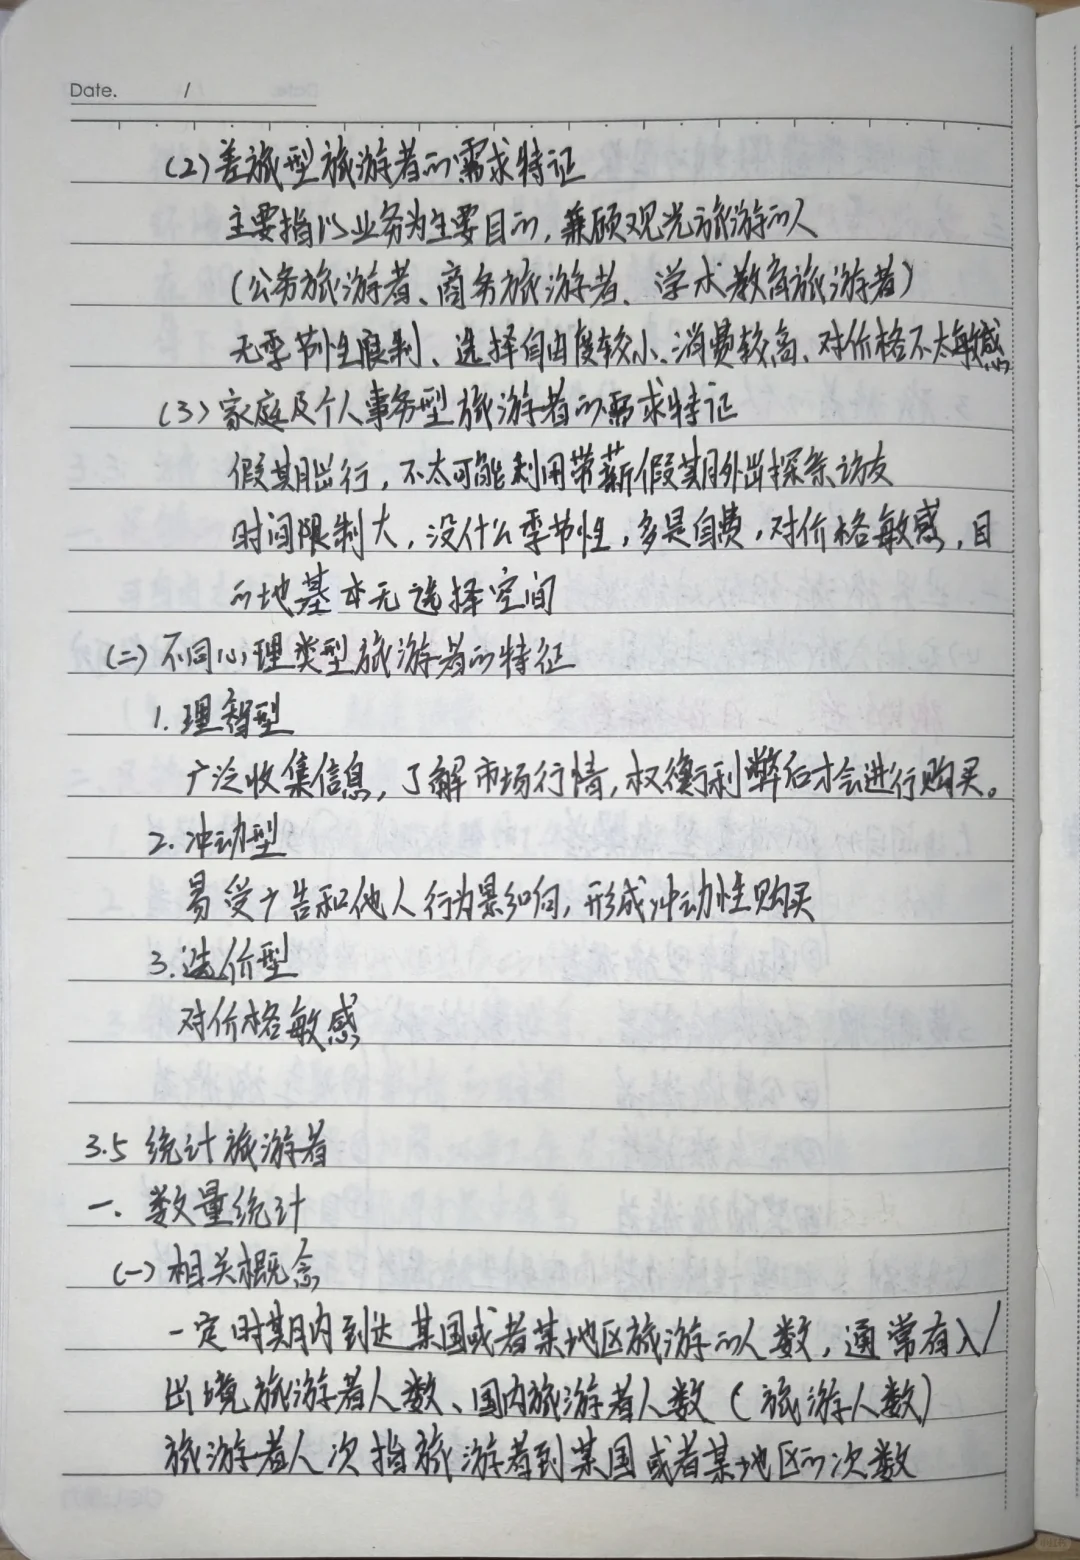 Date. /
(2)差旅型旅游者的需求特征
主要指以业务为主要目的,兼顾观光旅游的人
(公务旅游者、商务旅游者、学术教育旅游者)
无季节性限制、选择自由度较小、消费较高、对价格不太敏感
(3)家庭及个人事务型旅游者的需求特征
假期出行,不太可能利用带薪假期外出探亲访友
时间限制大,没什么季节性,多是自费,对价格敏感,目
的地基本无选择空间
(二)不同心理类型旅游者的特征
1.理智型
广泛收集信息,了解市场行情,权衡利弊后才会进行购买。
2.冲动型
易受广告和他人行为影响,形成冲动性购买
3.选价型
对价格敏感
3.5 统计旅游者
一.数量统计
(一)相关概念
一定时期内到达某国或者某地区旅游的人数,通常有入/
出境旅游者人数、国内旅游者人数(旅游人数)
旅游者人次指旅游者到某国或者某地区的次数
小红书